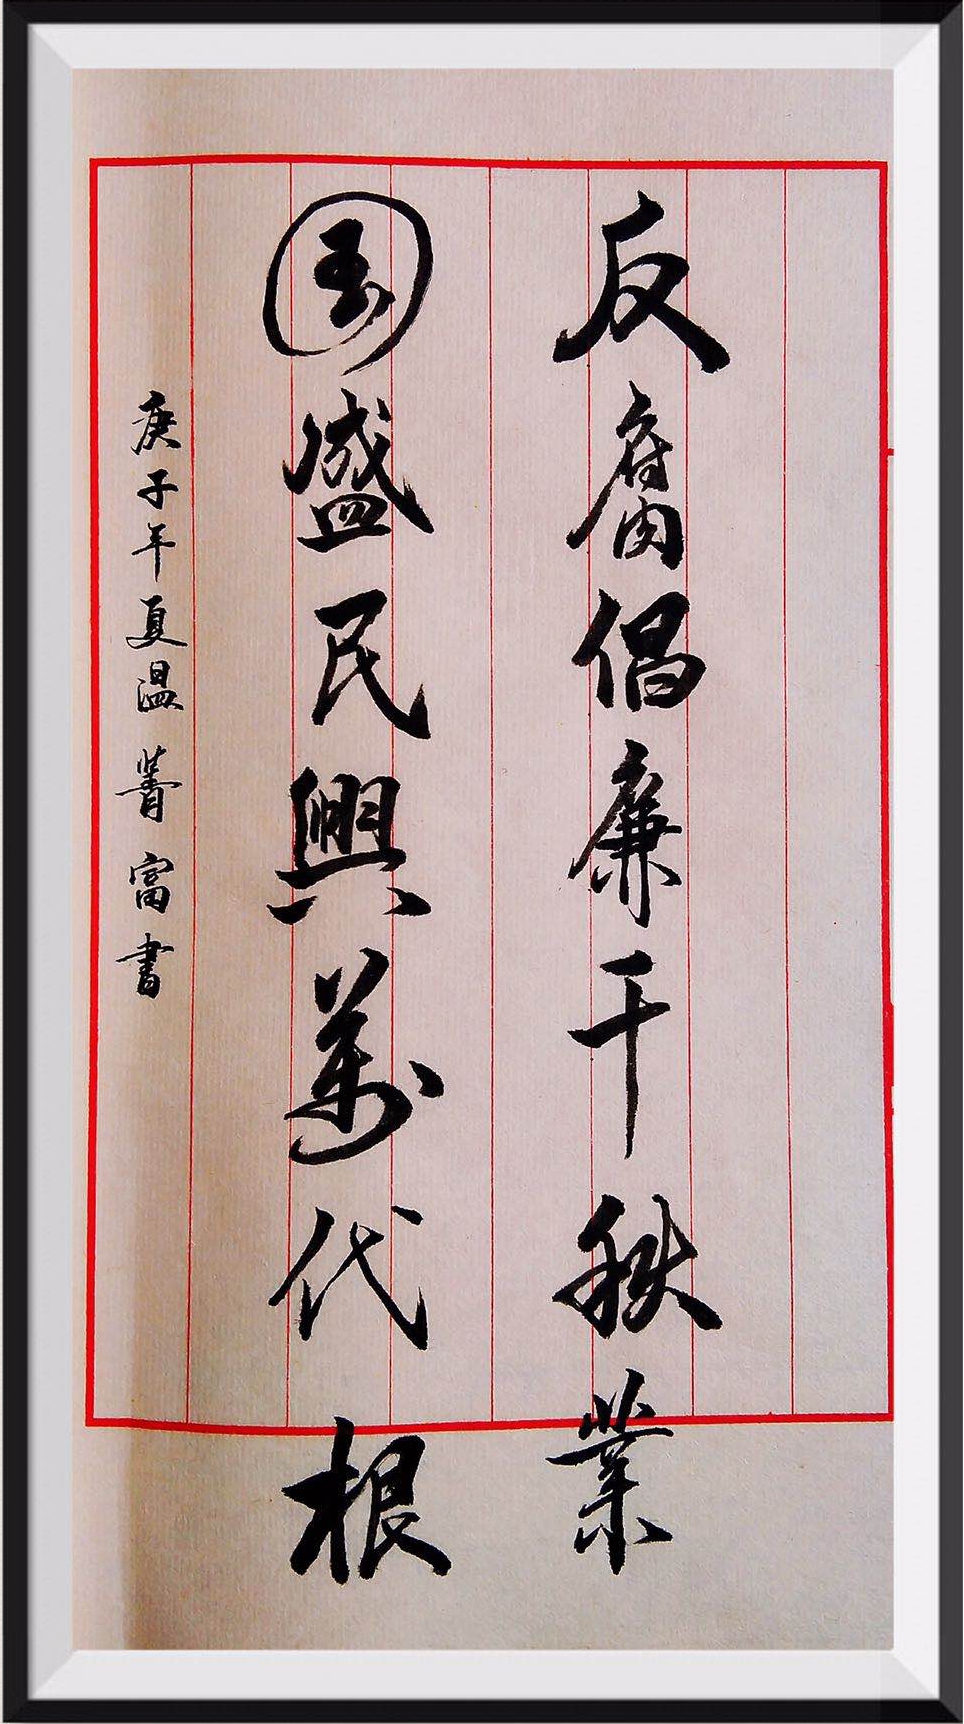 反腐倡廉千秋業
国盛民興萬代根
庚子年夏温菁富書